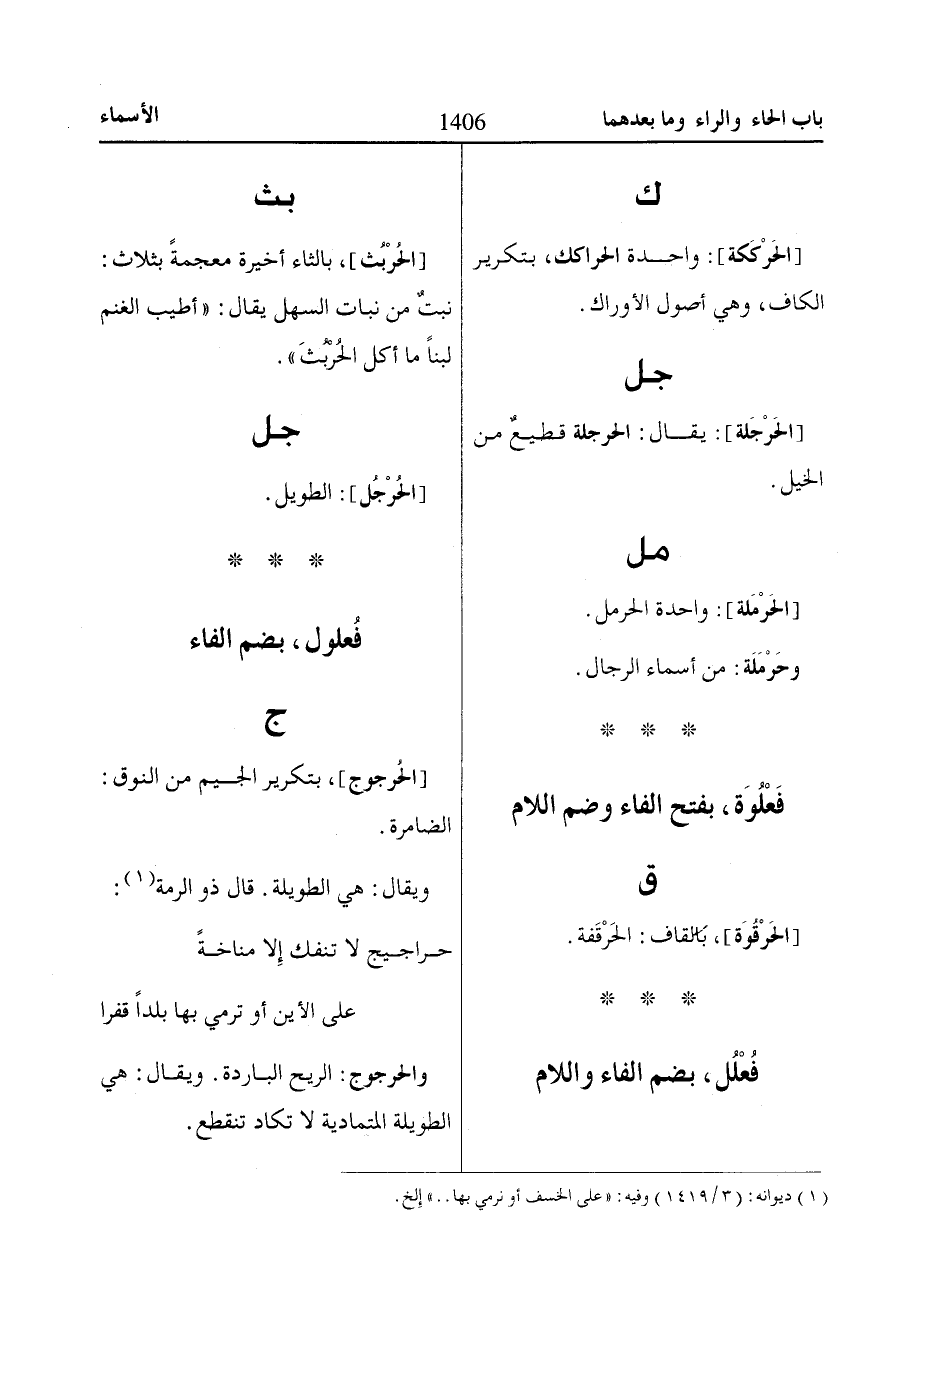 باب الحاء والراء وما بعدهما
1406
الأسماء
ك
[الحَرْكَكة]: واحـــدة الحراكك، بـتكرير
الكاف، وهي أصول الأوراك.
جـل
[الحَرْجَلة]: يـقـــال: الحرجلة قـطـيـعٌ مـن
الخيل.
مـل
[الحَرْمَلة]: واحدة الحرمل.
وحَرْمَلَة: من أسماء الرجال.
* * *
فَعْلُوَة، بفتح الفاء وضم اللام
ق
[الحَرْقُوَة]، بَالقاف: الحَرْقَفة.
* * *
فُعْلُل، بضم الفاء واللام
بـث
[الحُرْبُث]، بالثاء أخيرة معجمةً بثلاث:
نبتٌ من نبات السهل يقال: «أطيب الغنم
لبناً ما أكل الحُرْبُثَ».
جـل
[الحُرْجُل]: الطويل.
* * *
فُعلول، بضم الفاء
ج
[الحُرجوج]، بتكرير الجـيـم من النوق:
الضامرة.
ويقال: هي الطويلة. قال ذو الرمة(١):
حـراجـيـج لا تـنفك إلا مناخـةً
على الأين أو ترمي بها بلداً قفرا
والحرجوج: الريح البـاردة. ويقـال: هي
الطويلة المتمادية لا تكاد تنقطع.
(١) ديوانه: (١٤١٩/٣) وفيه: «على الخسف أو نرمي بها..» إلخ.